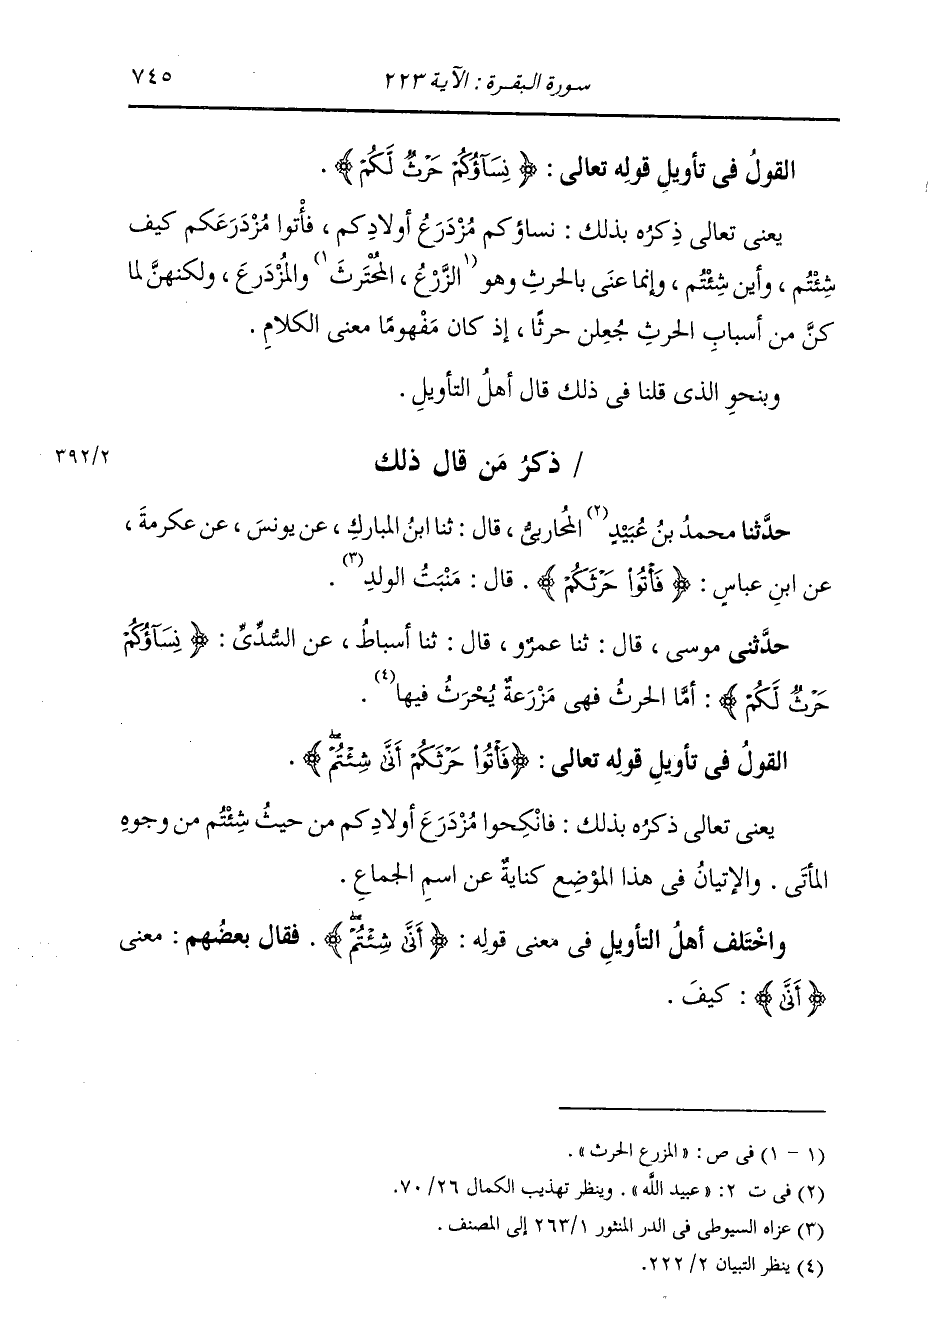 سورة البقرة : الآية ٢٢٣ ٧٤٥
القولُ فى تأويلِ قولِه تعالى : ﴿ نِسَآؤُكُمْ حَرْثٌ لَّكُمْ ﴾ .
يعنى تعالى ذِكرُه بذلك : نساؤكم مُزْدَرَعُ أولادِكم ، فأْتوا مُزْدَرَعَكم كيف
شِئْتُم ، وأين شِئْتُم ، وإنما عنَى بالحرثِ وهو (١ الزَّرْعُ ، المُحْتَرثَ ١) والمُزْدرعَ ، ولكنهنَّ لما
كنَّ من أسبابِ الحرثِ جُعِلن حرثًا ، إذ كان مَفْهومًا معنى الكلامِ .
وبنحوِ الذى قلنا فى ذلك قال أهلُ التأويلِ .
/ ذكرُ مَن قال ذلك ٣٩٢/٢
حدَّثنا محمدُ بنُ عُبَيْدٍ (٢) المُحاربىُّ ، قال : ثنا ابنُ المباركِ ، عن يونسَ ، عن عكرمةَ ،
عن ابنِ عباسٍ : ﴿ فَأْتُوا۟ حَرْثَكُمْ ﴾ . قال : مَنْبَتُ الولدِ (٣) .
حدَّثنى موسى ، قال : ثنا عمرٌو ، قال : ثنا أسباطُ ، عن السُّدِّىِّ : ﴿ نِسَآؤُكُمْ
حَرْثٌ لَّكُمْ ﴾ : أمَّا الحرثُ فهى مَزْرَعةٌ يُحْرَثُ فيها (٤) .
القولُ فى تأويلِ قولِه تعالى : ﴿ فَأْتُوا۟ حَرْثَكُمْ أَنَّىٰ شِئْتُمْ ۖ ﴾ .
يعنى تعالى ذكرُه بذلك : فانْكِحوا مُزْدَرَعَ أولادِكم من حيثُ شِئْتُم من وجوهِ
المأتَى . والإتيانُ فى هذا المؤْضِعِ كنايةٌ عن اسمِ الجماعِ .
واخْتَلف أهلُ التأويلِ فى معنى قولِه : ﴿ أَنَّىٰ شِئْتُمْ ۖ ﴾ . فقال بعضُهم : معنى
﴿ أَنَّىٰ ﴾ : كيفَ .
(١ - ١) فى ص : « المزرع الحرث » .
(٢) فى ت ٢: « عبيد اللَّه » . وينظر تهذيب الكمال ٢٦/ ٧٠.
(٣) عزاه السيوطى فى الدر المنثور ٢٦٣/١ إلى المصنف .
(٤) ينظر التبيان ٢/ ٢٢٢.